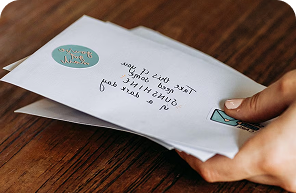 Take this if you
need some
SUNSHINE
on a dark day